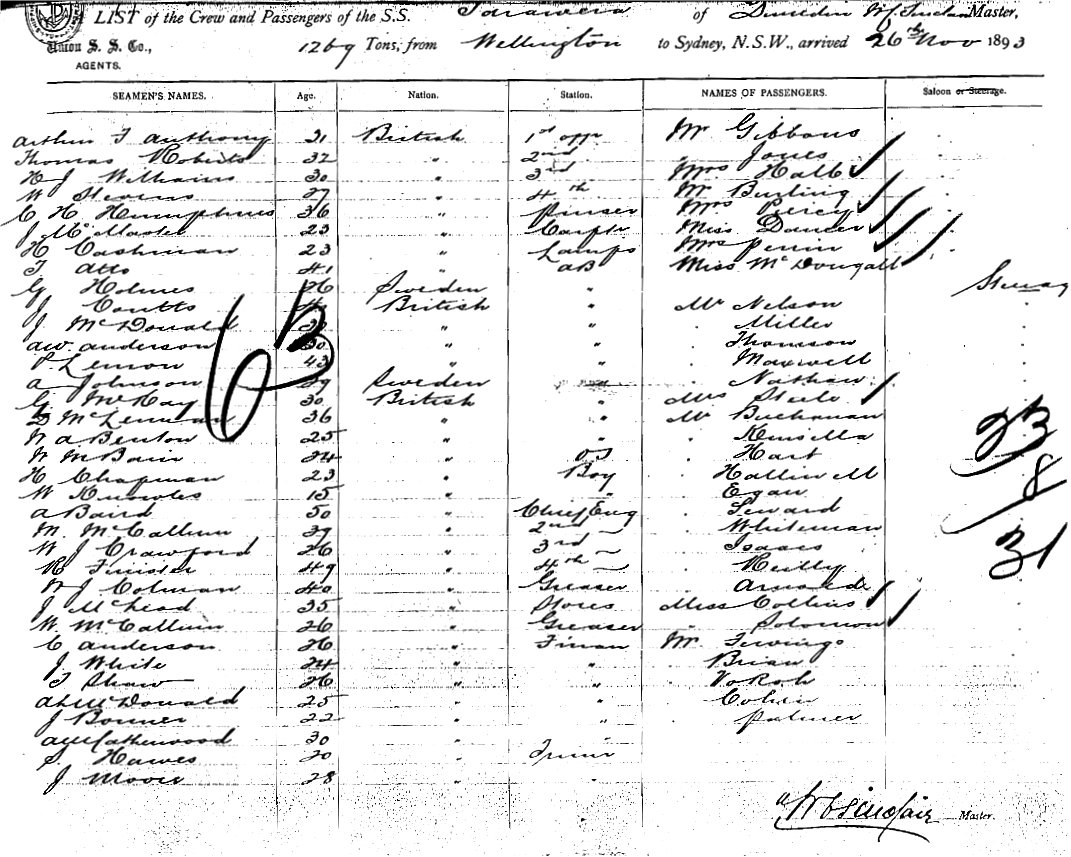 LIST of the Crew and Passengers of the S.S. Tarawera of Dunedin Master,
Union S. S. Co., 1269 Tons, from Wellington to Sydney, N.S.W., arrived 26th Nov 1893
AGENTS.
SEAMEN'S NAMES. Age. Nation. Station. NAMES OF PASSENGERS. Saloon or Steerage.
Arthur T Anthony 31 British 1st offr Mr Gibbons
Thomas Roberts 32 " 2nd " Jones
H J Williams 30 " 3rd Mrs Hall
W Stevens 27 " 4th Mr Burling
C H Humphries 36 " Purser Mrs Percy
J McMaster 23 " Carptr Miss Dancer
H Cashman 23 " Lamps Mrs Perrin
T Atto 41 " AB Miss McDougall
G Holmes 26 Sweden " Steerag
J Coutts British " Mr Nelson
J McDonald " " Miller
AW Anderson 30 " " Thomson
P Lemon 43 " " Maxwell
A Johnson 29 Sweden " Nathan
G McKay 30 British " Mrs Steele
D McLennan 36 " " Mr Buchanan
W A Benton 25 " " Kinsella
W McBain 24 " OS Hart
H Chapman 23 " Boy Hallin M
W Knowles 15 " " Egan
A Baird 50 " Chief Eng Seward
M. McCallum 39 " 2nd Whiteman
W J Crawford 26 " 3rd Isaacs
R Finister 49 " 4th Reilly
W J Colman 40 " Greaser
J McLead 35 " Stores Miss Collins
W McCallum 26 " Greaser Solomon
C Anderson 26 " Firman Mr
J White 24 " " Brian
T Shaw 26 " "
McDonald 25 " " Cohen
J Bonner 22 " " Palmer
30
S. Hawes 20 "
J Moore 28 "
63
23
8
31
Sinclair Master.